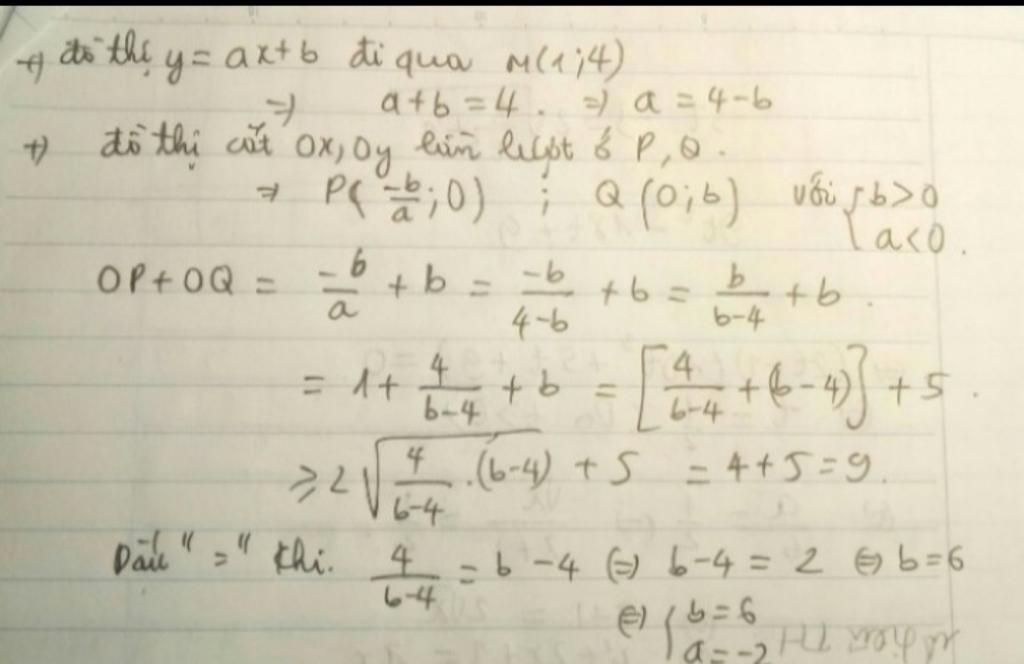 +) đồ thị y = ax + b đi qua M(1;4)
=> a + b = 4. => a = 4 - b
+) đồ thị cắt Ox, Oy lần lượt ở P, Q.
=> P(-b/a; 0) ; Q(0; b) với { b > 0
a < 0.
OP + OQ = -b/a + b = -b/(4-b) + b = b/(b-4) + b.
= 1 + 4/(b-4) + b = [4/(b-4) + (b-4)] + 5.
≥ 2√(4/(b-4) . (b-4)) + 5 = 4 + 5 = 9.
Dấu "=" khi. 4/(b-4) = b - 4 (=) b - 4 = 2 (=) b = 6
(=) { b = 6
a = -2